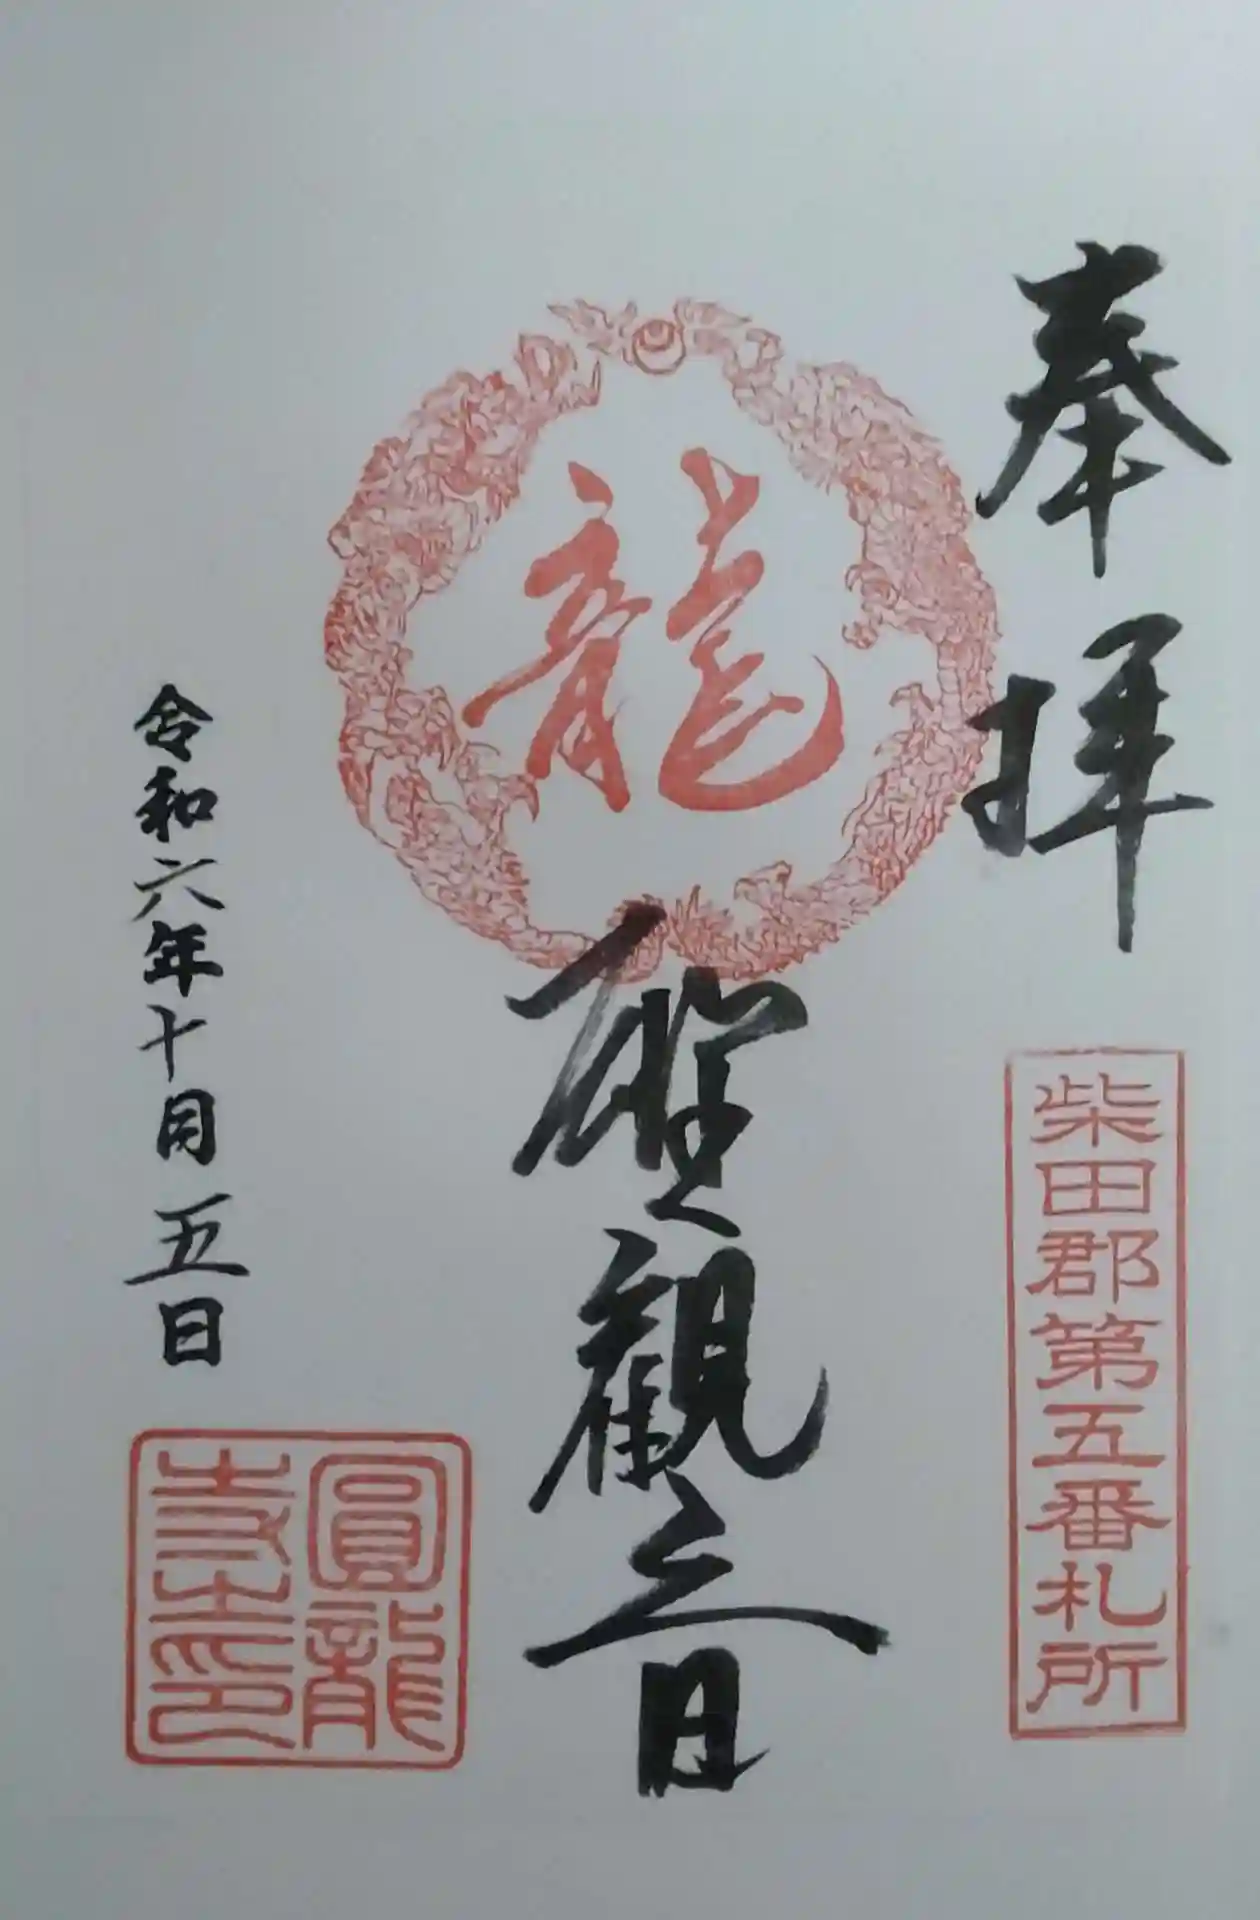 奉拝
柴田郡第五番札所
龍
聖觀音
令和六年十月五日
圓龍
寺主印